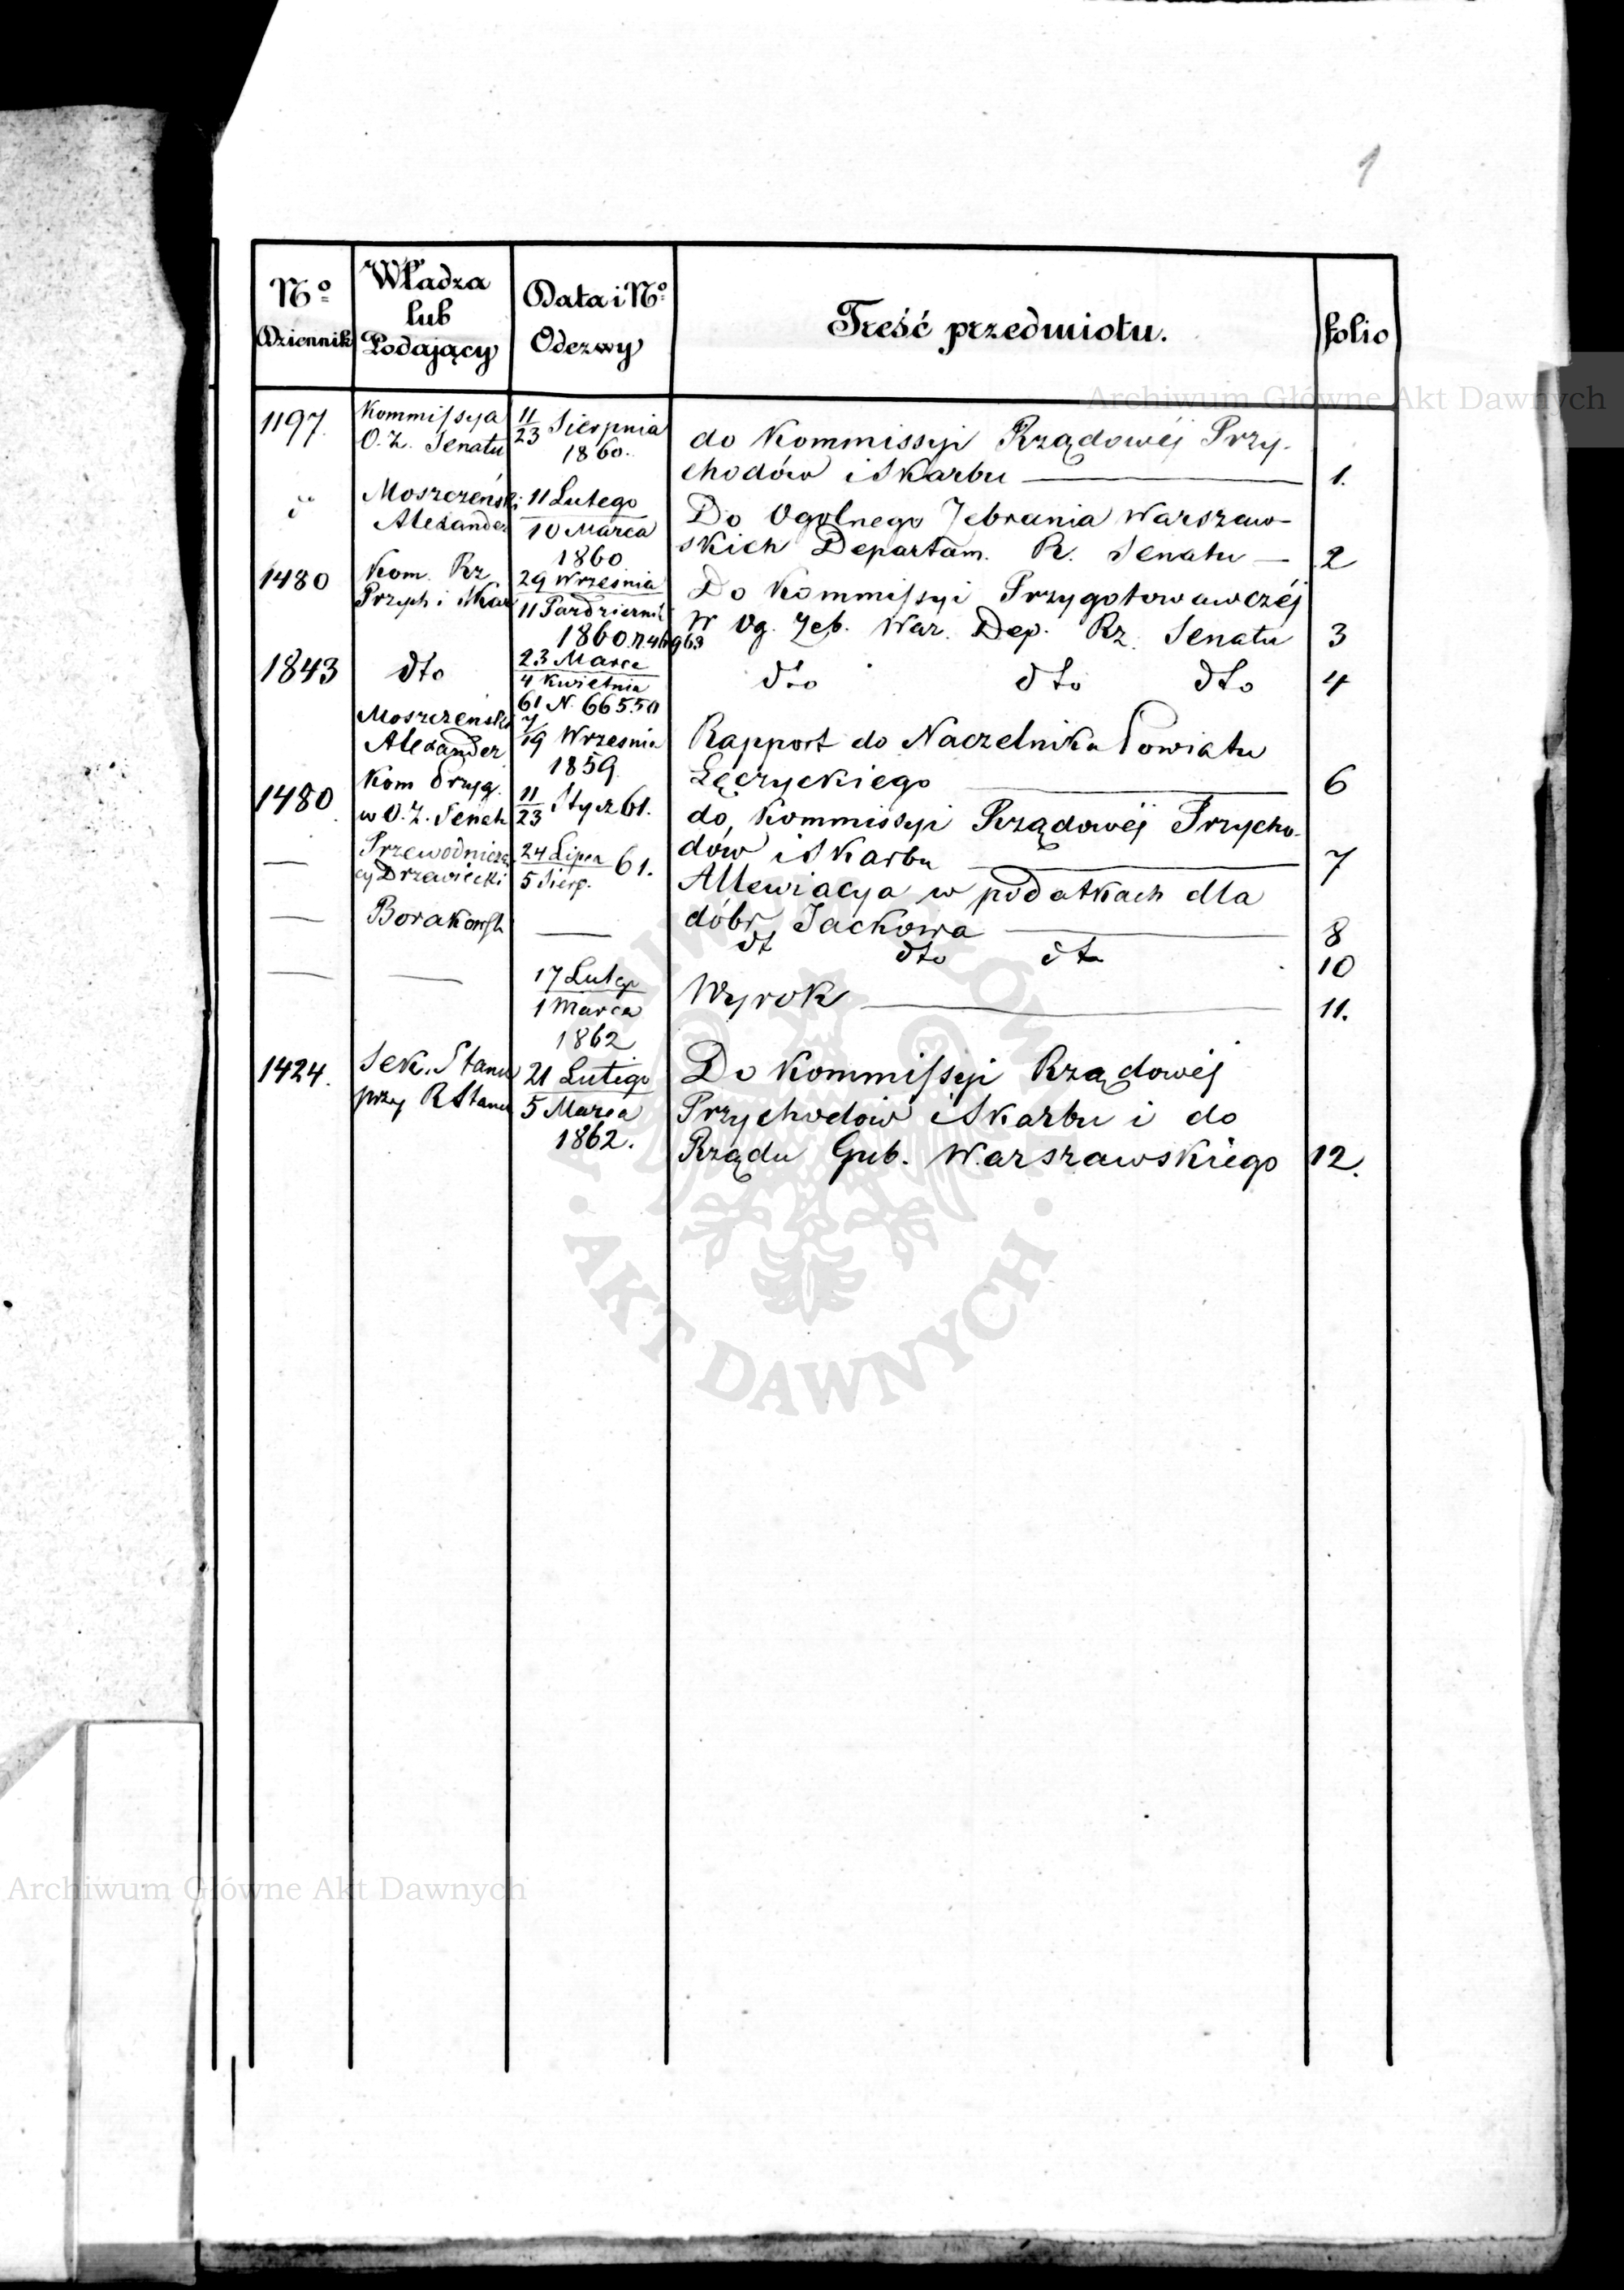 1
Nº Dziennik
Władza lub Podający
Data i Nº Odezwy
Treść przedmiotu.
folio
1197. Kommissya 11/23 Sierpnia do Kommissyi Rządowéj Przy-
O. Z. Senatu 1860. chodów i Skarbu 1.
dº Moszczeński 11 Lutego Do Ogolnego Zebrania Warszaw-
Alexander 10 Marca 1860 skich Departam. R. Senatu 2
1480 Kom. Rz. 29 Września Do Kommissyi Przygotowawczéj
Przych i Skar 11 Październik 1860 n. 46963 W Og. Zeb. War. Dep. Rz. Senatu 3
1843 dto 23 Marca dto dto dto 4
4 Kwietnia
61 N. 66550
Moszczeński 7/19 Wrzesnia Rapport do Naczelnika Powiatu
Alexander 1859 Łęczyckiego 6
1480. Kom Przyg. 11/23 Stycz 61. do Kommissyi Rządowéj Przycho-
w O. Z. Senat dów i Skarbu 7
— Przewodniczą 24 Lipca 61. Allewiacya w podatkach dla
cy Drzewiecki 5 Sierp. dóbr Jackowa 8
— Borakowsk — dt dto dto 10
— — 17 Lutego Wyrok 11.
1 Marca
1862
1424. Sek. Stanu 21 Lutego Do Kommissyi Rządowéj
przy R Stanu 5 Marca Przychodów i Skarbu i do
1862. Rządu Gub. Warszawskiego 12.
Archiwum Główne Akt Dawnych
AKT DAWNYCH
Archiwum Główne Akt Dawnych